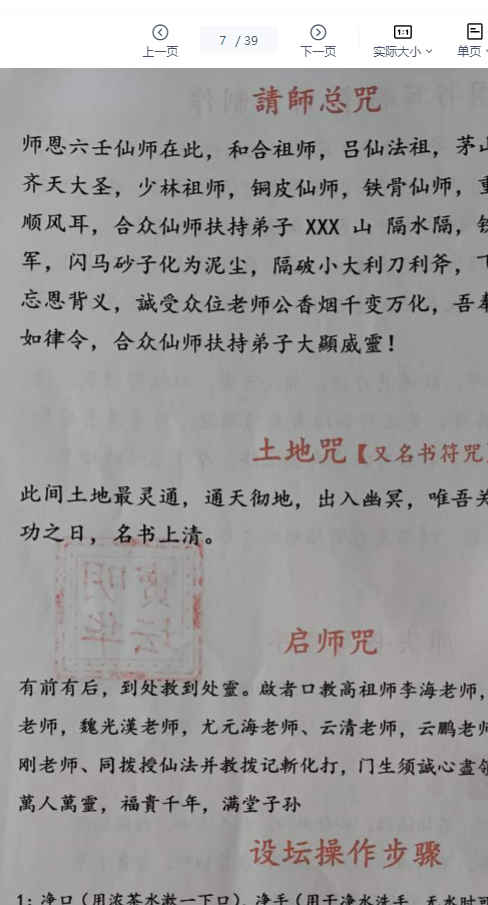 上一页
7 / 39
下一页
1:1
实际大小
单页
請師总咒
师恩六壬仙师在此，和合祖师，吕仙法祖，茅山
齐天大圣，少林祖师，铜皮仙师，铁骨仙师，
顺风耳，合众仙师扶持弟子 XXX 山 隔水隔，
军，闪马砂子化为泥尘，隔破小大利刀利斧，
忘恩背义，誠受众位老师公香烟千变万化，吾奉
如律令，合众仙师扶持弟子大顯威靈！
土地咒【又名书符咒】
此间土地最灵通，通天彻地，出入幽冥，唯吾关
功之日，名书上清。
启师咒
有前有后，到处教到处靈。啟者口教高祖师李海老师，
老师，魏光漢老师，尤元海老师、云清老师，云鹏老师
刚老师、同拨授仙法并教拨记斬化打，门生须誠心盡领
萬人萬靈，福貴千年，满堂子孙
设坛操作步骤
1：净口（用浓茶水漱一下口）净手（用干净水洗手，无水时可